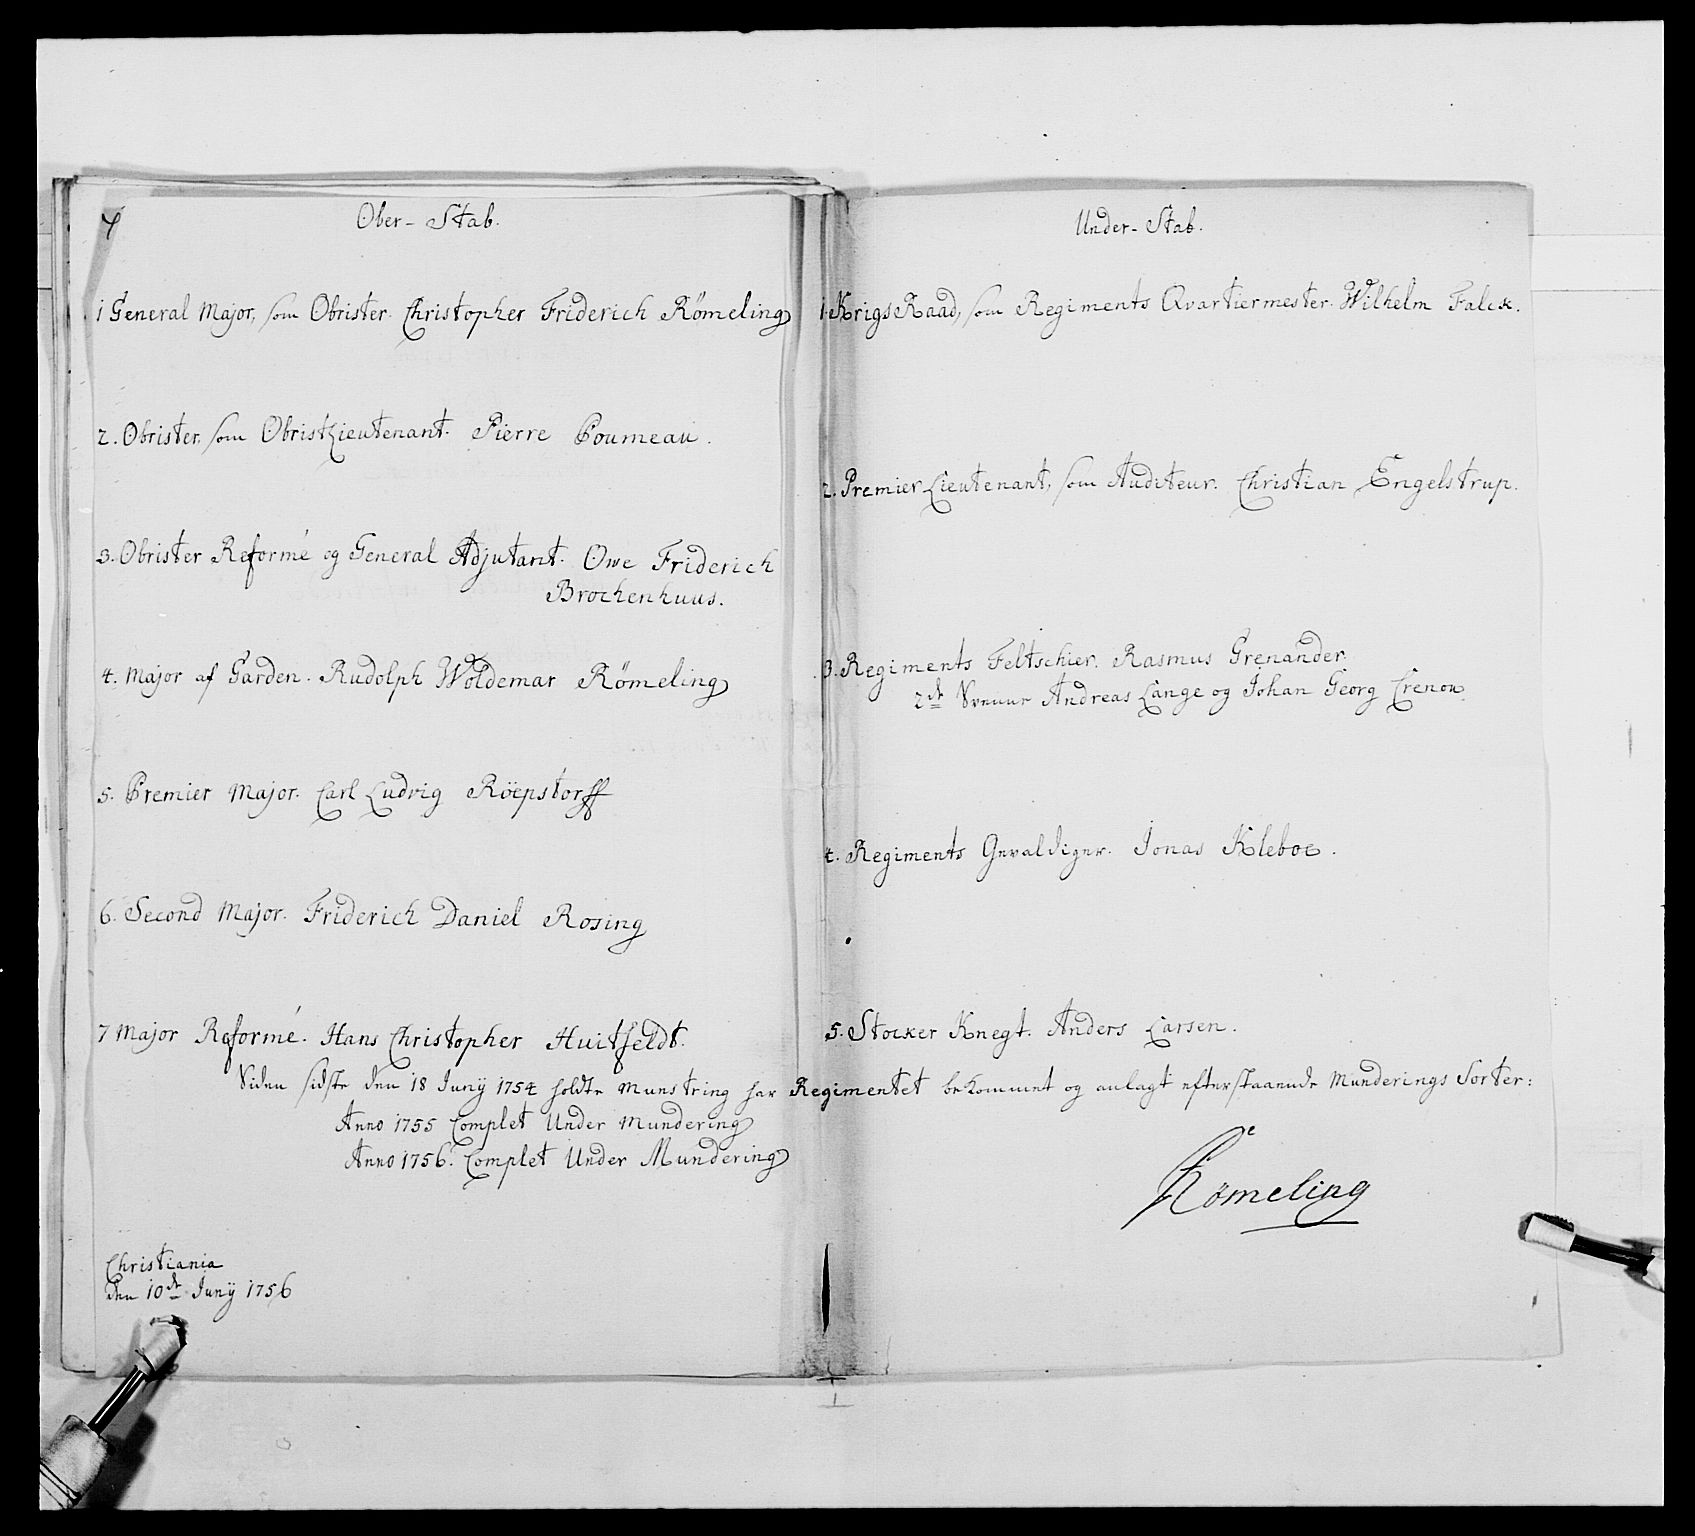 4
Ober-Stab.
1 General Major, som Obrister. Christopher Friderich Römeling
2. Obrister, som ObristLieutenant. Pierre Poumeau.
3. Obrister Reformé og General Adjutant. Owe Friderich
Brochenhuus.
4. Major af Garden. Rudolph Woldemar Römeling
5. Premier Major. Carl Ludvig Röepstorff
6. Second Major. Friderich Daniel Rosing
7 Major Reformé. Hans Christopher Huitfeldt.
Under-Stab.
1. KrigsRaad, som Regiments Qvartiermester. Wilhelm Falck.
2. Premier Lieutenant, som Auditeur. Christian Engelstrup.
3. Regiments Feltschier. Rasmus Grenander.
2de Svenne Andreas Lange og Johan Georg Crenow.
4. Regiments Gevaldiger. Jonas Kleboe.
5. Stocker Knegt. Anders Larsen.
Siden sidste den 18 Junÿ 1754 holdte Munstring har Regimentet bekommet og anlagt efterstaaende Munderings Sorter:
Anno 1755 Complet Under Mundering
Anno 1756. Complet Under Mundering
Römeling
Christiania
den 10de Junÿ 1756